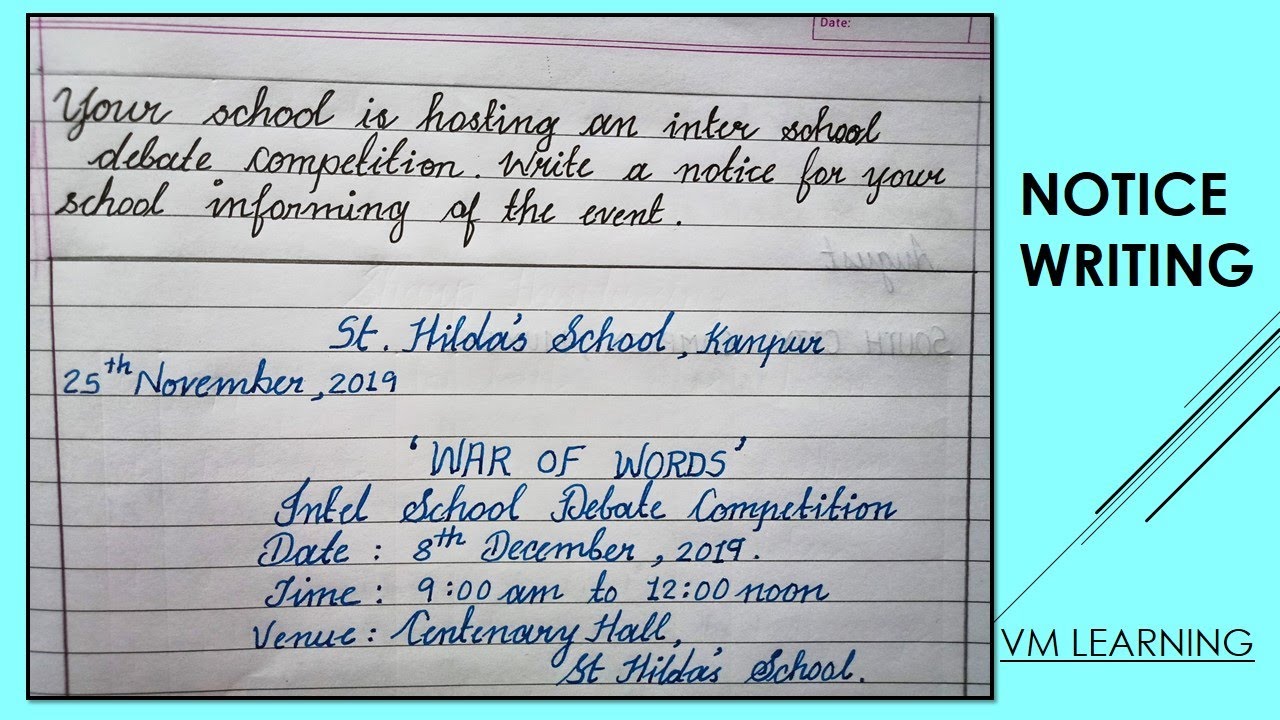 Date:
Your school is hosting an inter school
debate competition. Write a notice for your
school informing of the event.
August
St. Hilda's School, Kanpur
25th November, 2019
'WAR OF WORDS'
Intel School Debate Competition
Date : 8th December, 2019.
Time : 9:00 am to 12:00 noon
Venue : Centenary Hall,
St Hilda's School.
NOTICE
WRITING
VM LEARNING